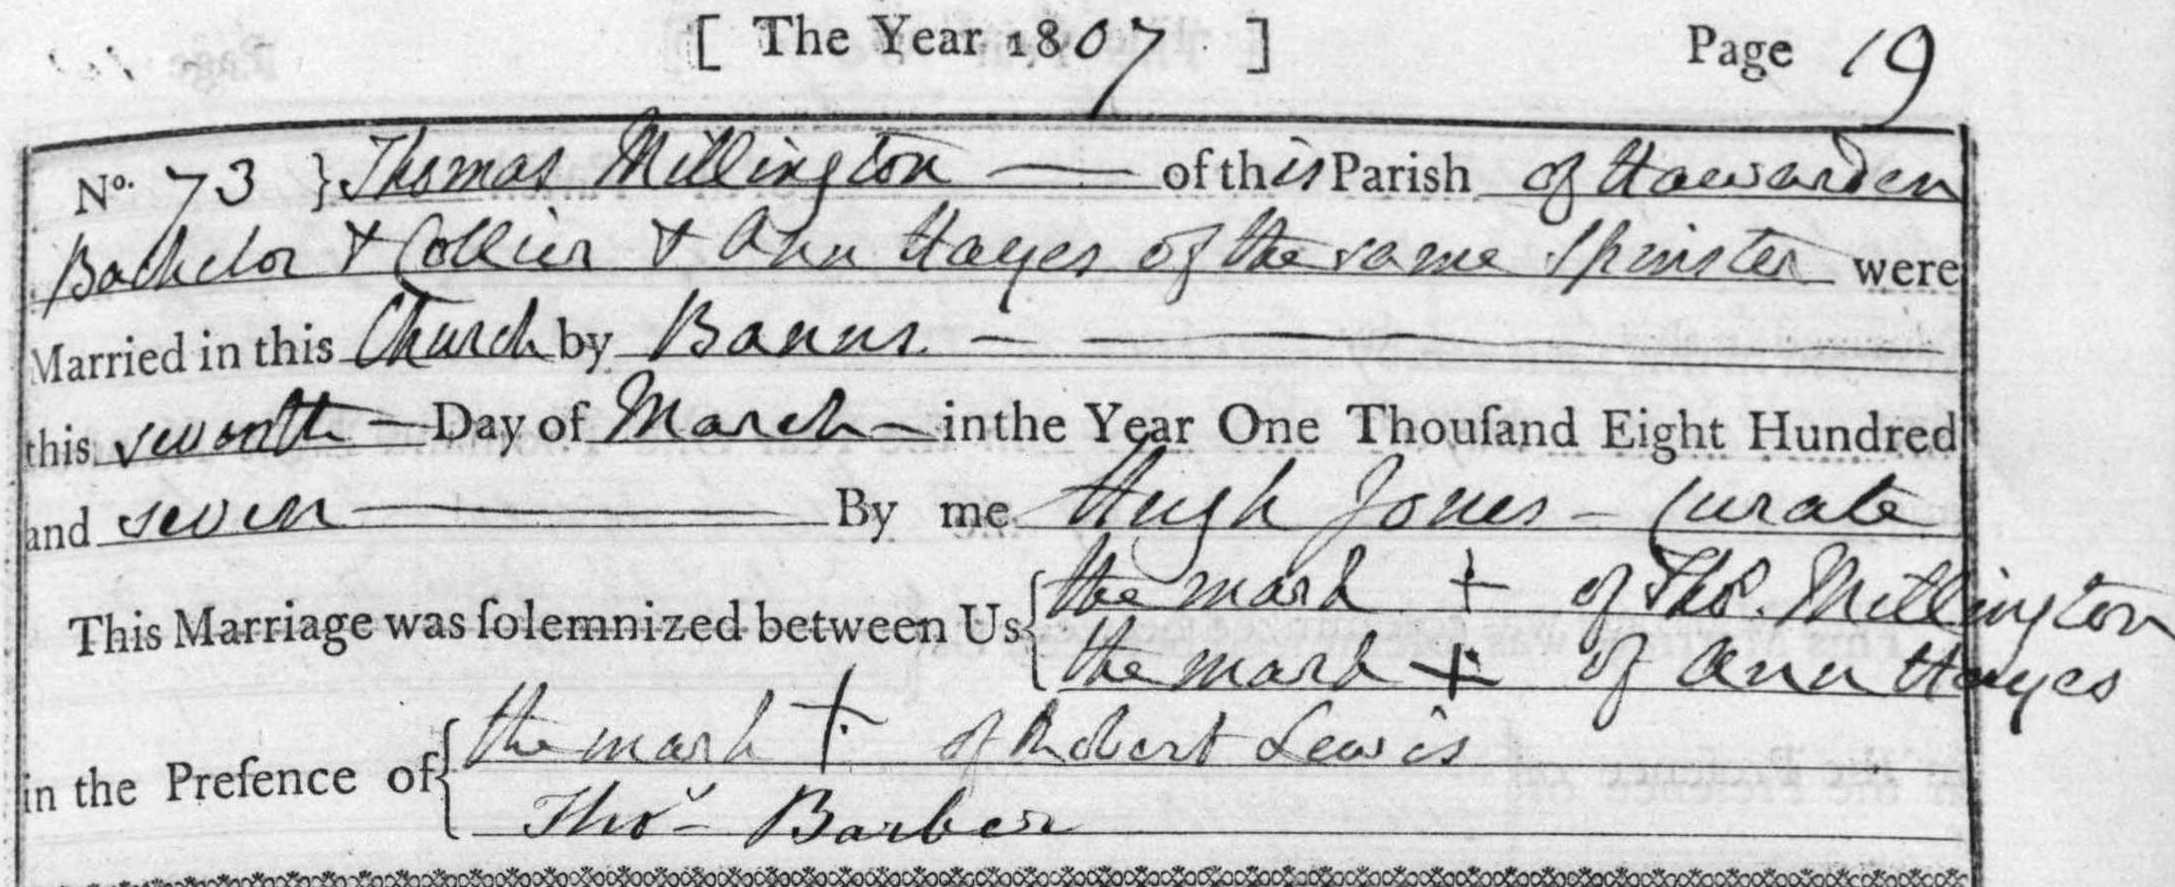 [ The Year 1807 ] Page 19
No. 73 } Thomas Millington — of this Parish of Hawarden
Bachelor & Collier & Ann Hayes of the same Spinster were
Married in this Church by Banns. — —
this seventh — Day of March — in the Year One Thouſand Eight Hundred
and seven — By me Hugh Jones — Curate
This Marriage was ſolemnized between Us { the mark + of Thos. Millington
the mark + of Ann Hayes
in the Preſence of { the mark + of Robert Lewis
Thos Barber